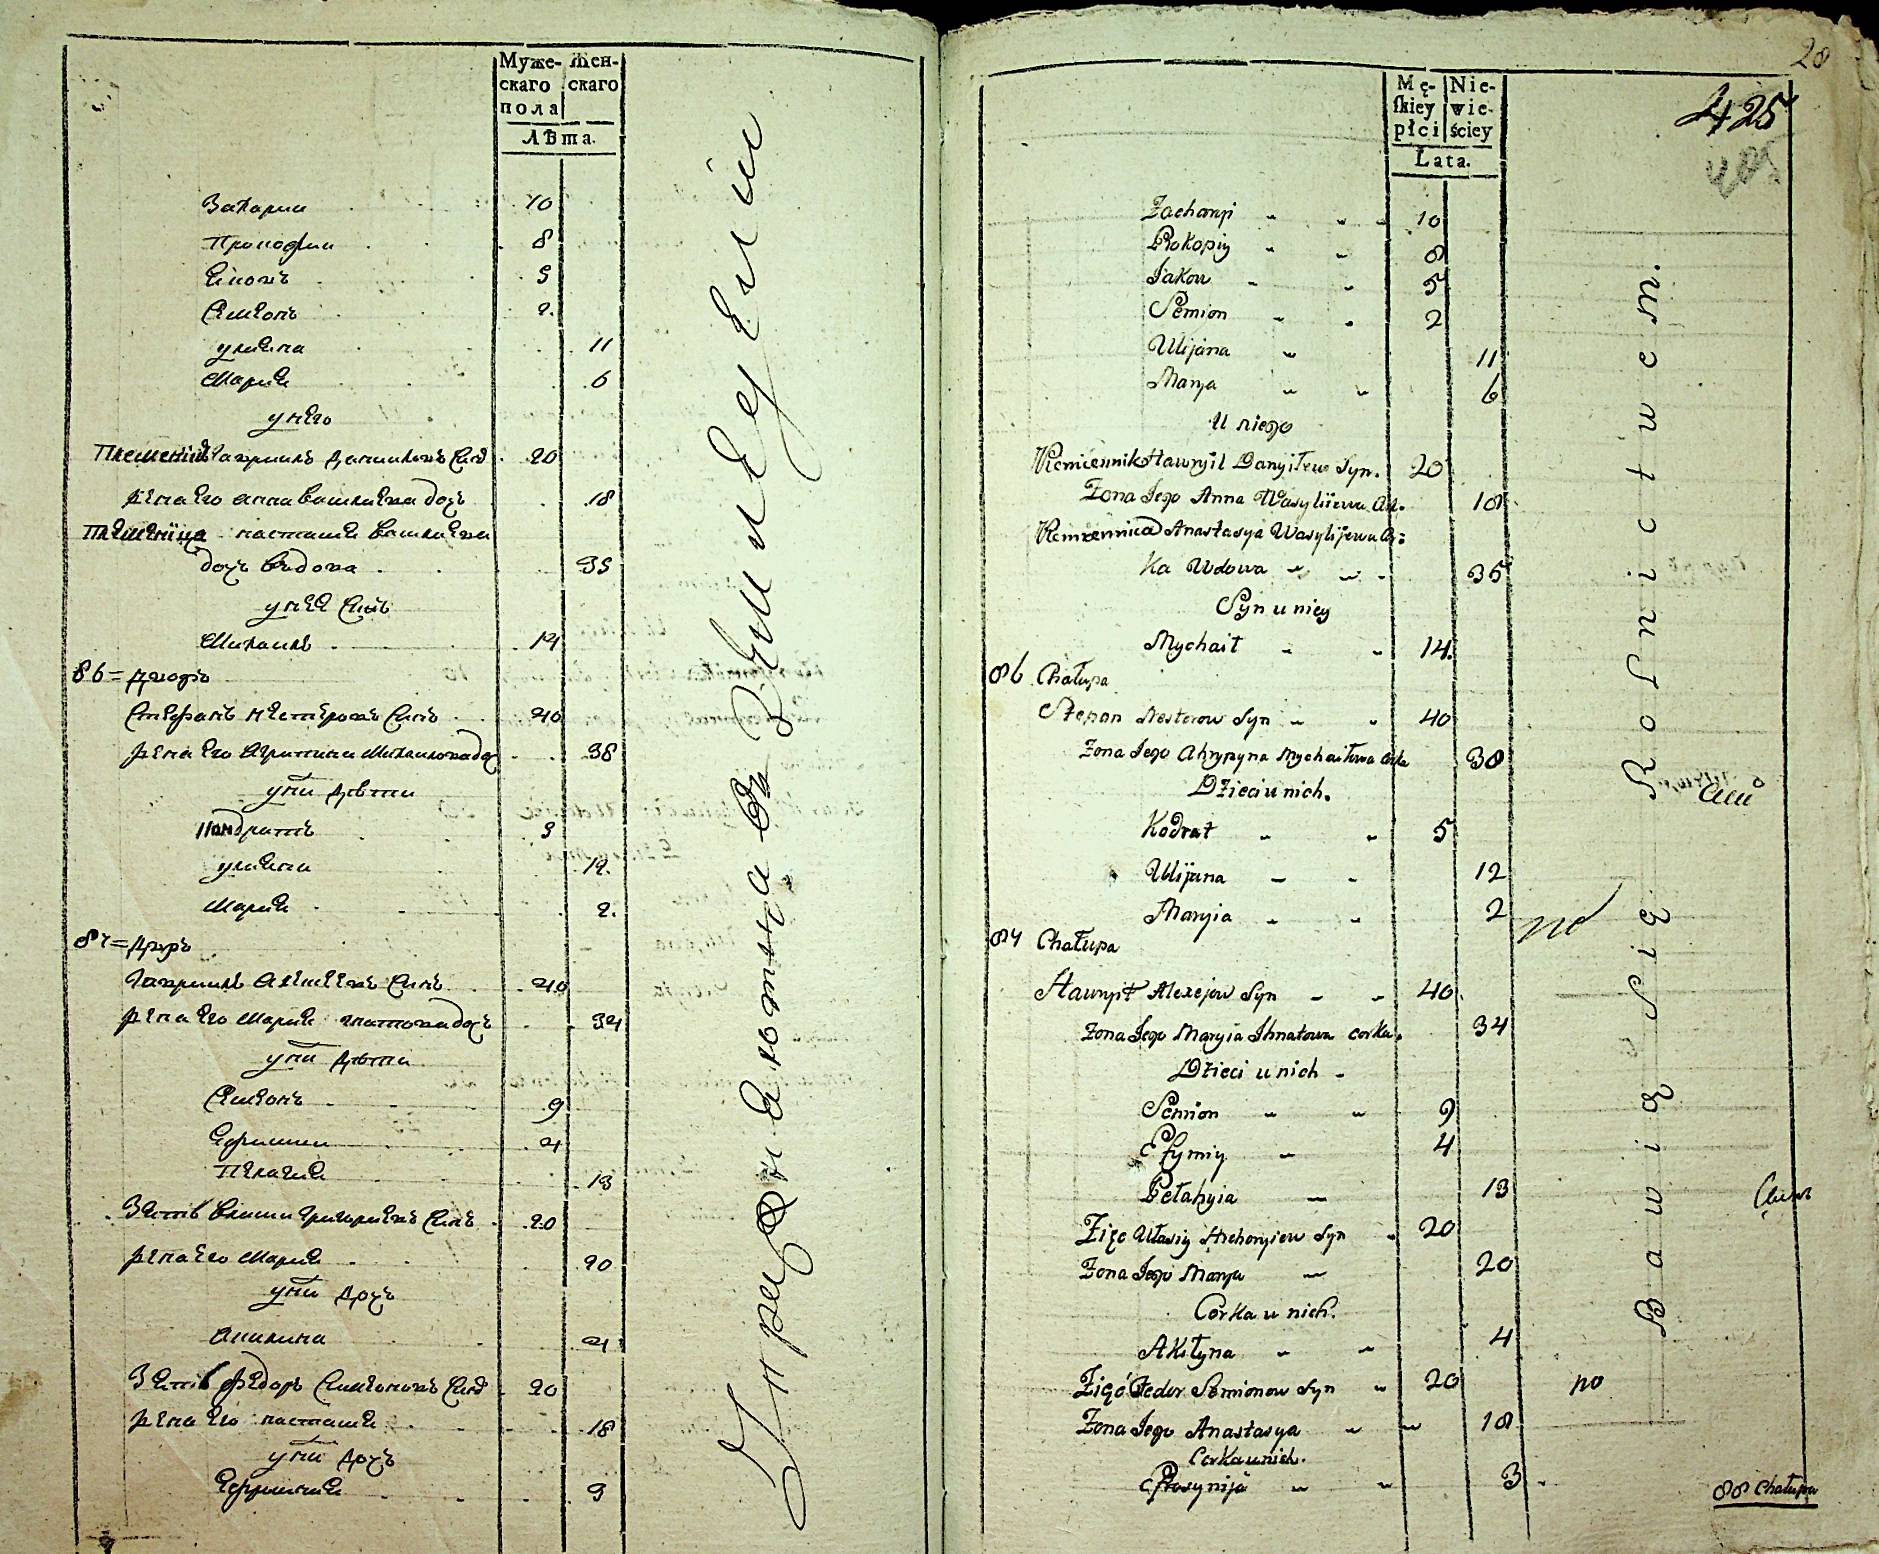 Муже- Жен-
скаго скаго
пола
Лѣта.
Захарии 10
Прокофии 8
Якокъ 5
Семенъ 2
улиена 11
Марие 6
у него
Племеникъ Гавриилъ Даниловъ Синъ 20
жена его Анна Василиева дочъ 18
племеница настасие Василиева
дочъ вдова 35
у нее Синъ
Михаилъ 14
86 = Дворъ
Стефанъ Нестеровъ Синъ 40
жена его Агрипина Михаилова доч 38
у них дѣти
Кондратъ 5
улиена 12
Марие 2
87 = Дворъ
Гавриилъ Алексеевъ Синъ 40
жена его Марие гнатова дочъ 34
у них дѣти
Семенъ 9
Ефимии 4
Пелагие 13
Зять Власии Григориевъ Синъ 20
жена его Марие 20
у них дочъ
Акилина 4
Зять Федоръ Семеновъ Синъ 20
жена его настасие 18
у них дочъ
Ефросиние 3
Упражняются въ Земледелии
28
425
Mę- Nie-
skiey wie-
płci ściey
Lata.
Zacharyi 10
Prokopiy 8
Jakow 5
Semion 2
Ulijana 11
Marya 6
U niego
Plemiennik Hawryil Danyiłow Syn. 20
Zona Jego Anna Wasylijewa Cor. 18
Plemiennica Anastasya Wasylijewa Cor:
ka Wdowa 35
Syn u niey
Mychaił 14.
86 Chałupa
Stepan Nesterow Syn 40
Zona Jego Ahrypyna Mychaiłowa Corka 38
Dzieci u nich.
Kodrat 5
Ulijana 12
Maryia 2
87 Chałupa
Hawrył Alexejow Syn 40
Zona Jego Maryia Ihnatowa corka. 34
Dzieci u nich
Semion 9
Efymiy 4
Pełahyia 13
Zięc Własiy Hrehoryiew Syn 20
Zona Jego Marya 20
Corka u nich.
Akiłyna 4
Zięć Fedor Semionow Syn 20
Zona Jego Anastasya 18
Corka u nich.
Efrosynija 3
Bawią Się Rolnictwem.
no
no
88 Chałupa